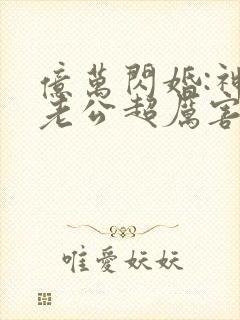 億萬閃婚:神
老公超厲害
唯愛妖妖